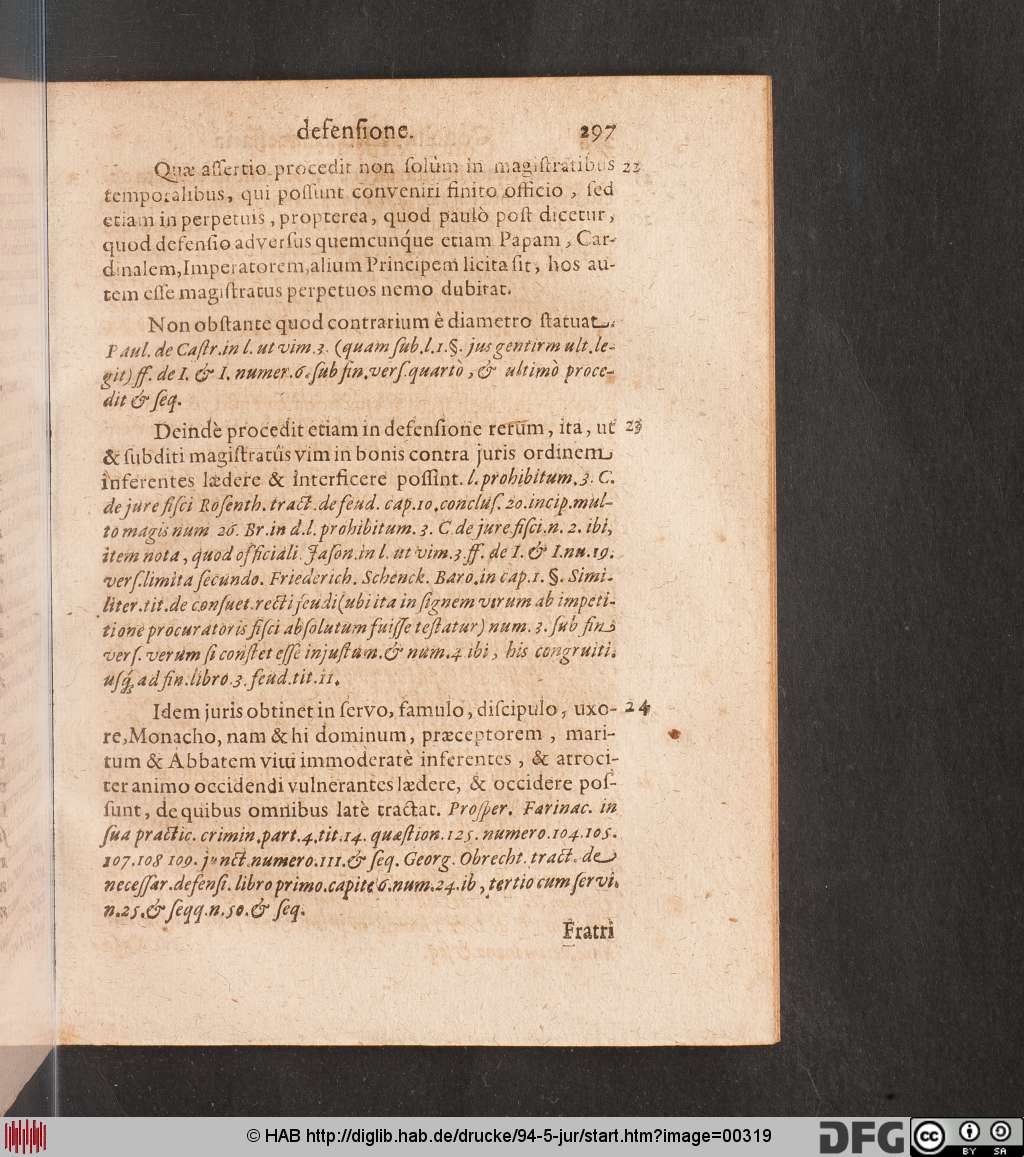 defenſione. 297
Quæ aſſertio procedit non ſolùm in magiſtratibus 22
temporalibus, qui poſſunt conveniri finito officio, ſed
etiam in perpetuis, propterea, quod paulò poſt dicetur,
quod defenſio adverſus quemcunq́ue etiam Papam, Car-
dinalem, Imperatorem, alium Principem licita ſit, hos au-
tem eſſe magiſtratus perpetuos nemo dubitat.
Non obſtante quod contrarium è diametro ſtatuat.
Paul. de Caſtr. in l. ut vim. 3. (quam ſub. l. 1. §. jus gentirm ult. le-
git) ff. de I. & I. numer. 6. ſub fin. verſ. quartò, & ultimò proce-
dit & ſeq.
Deindè procedit etiam in defenſione rerum, ita, ut 23
& ſubditi magiſtratûs vim in bonis contra juris ordinem
inferentes lædere & interficere poſſint. l. prohibitum. 3. C.
de jure fiſci Roſenth. tract. de feud. cap. 10. concluſ. 20. incip. mul-
to magis num 26. Br. in d. l. prohibitum. 3. C. de jure. fiſci. n. 2. ibi,
item nota, quod officiali. Jaſon. in l. ut vim. 3. ff. de I. & I. nu. 19.
verſ. limita ſecundo. Friederich. Schenck. Baro. in cap. 1. §. Simi-
liter. tit. de conſuet. recti feudi (ubi ita in ſignem virum ab impeti-
tione procuratoris fiſci abſolutum fuiſſe teſtatur) num. 3. ſub fin
verſ. verum ſi conſtet eſſe injuſtum. & num. 4 ibi, his congruiti.
uſq́; ad fin. libro. 3. feud. tit. 11.
Idem juris obtinet in ſervo, famulo, diſcipulo, uxo- 24
re, Monacho, nam & hi dominum, præceptorem, mari-
tum & Abbatem vim immoderatè inferentes, & atroci-
ter animo occidendi vulnerantes lædere, & occidere poſ-
ſunt, de quibus omnibus latè tractat. Proſper. Farinac. in
ſua practic. crimin. part. 4. tit. 14. quæſtion. 125. numero. 104. 105.
107. 108 109. junct. numero. 111. & ſeq. Georg. Obrecht. tract. de
neceſſar. defenſi. libro primo. capite 6. num. 24. ib, tertio cum ſervi.
n. 25. & ſeqq. n. 50. & ſeq.
Fratri
© HAB http://diglib.hab.de/drucke/94-5-jur/start.htm?image=00319
DFG
cc BY SA